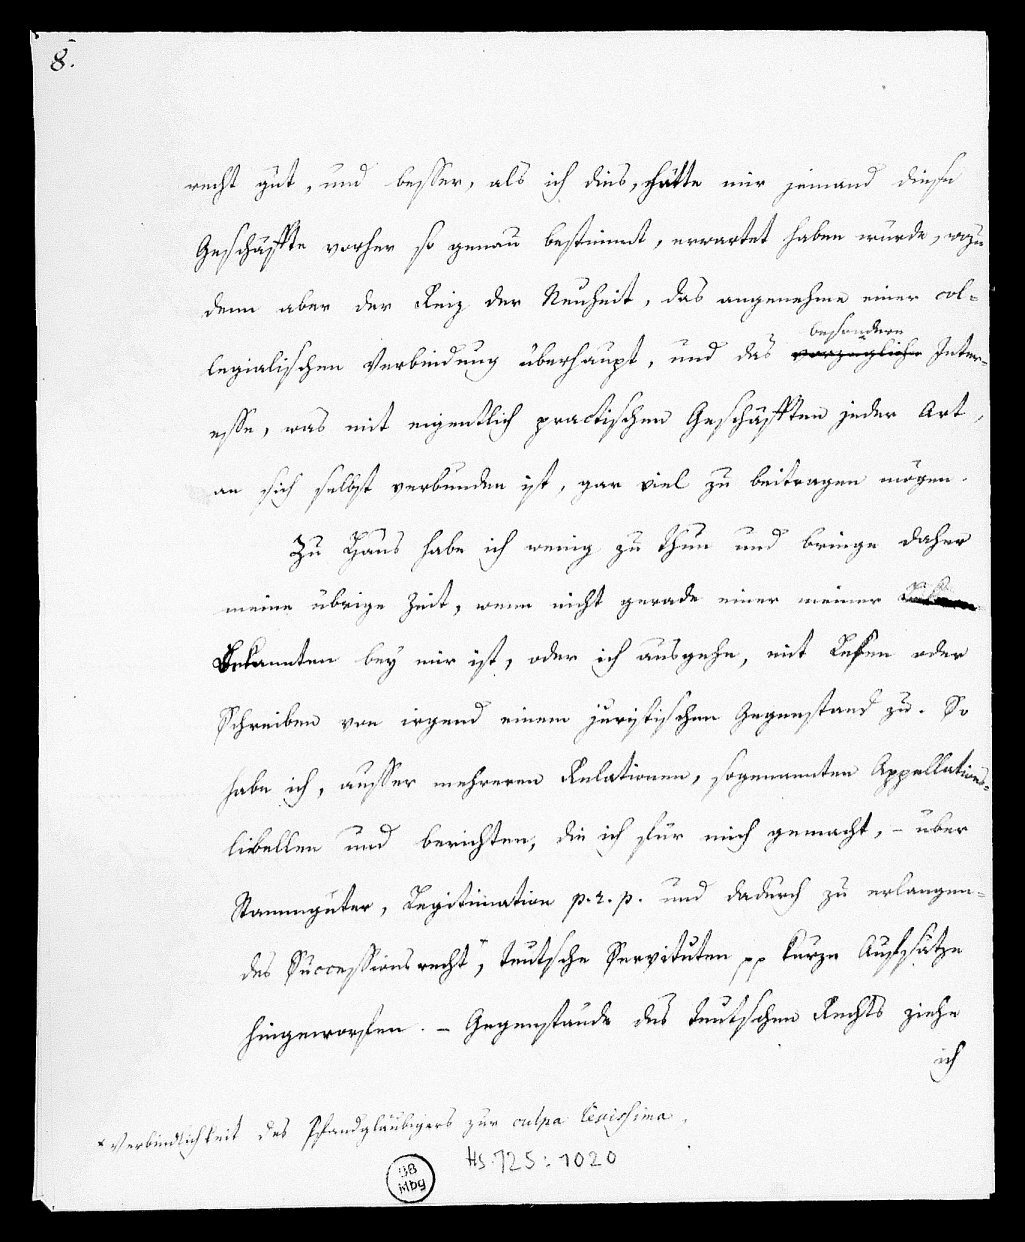 8.
recht gut, und besser, als ich dies, hätte mir jemand diese
Geschäffte vorher so genau bestimmt, erwartet haben würde, wozu
denn aber der Reiz der Neuheit, das angenehme einer col-
besondere
legialischen Verbindung überhaupt, und das vorzügliche Inter-
esse, was mit eigentlich practischen Geschäfften jeder Art,
an sich selbst verbunden ist, gar viel zu beitragen mögen.
Zu Haus habe ich wenig zu thun und bringe daher
meine übrige Zeit, wenn nicht gerade einer meiner
Bekannten bey mir ist, oder ich ausgehe, mit Lesen oder
Schreiben von irgend einem juristischen Gegenstand zu. So
habe ich, ausser mehreren Relationen, sogenannten Appellations-
libellen und berichten, die ich für mich gemacht, – über
Stammgüter, Legitimation p. r. p. und dadurch zu erlangen-
des Successionsrecht, teutsche Servituten pp kurze Aufsätze
hingeworfen. – Gegenstände des teutschen Rechts ziehe
ich
* Verbindlichkeit des Pfandgläubigers zur culpa levissima.
Hs. 725: 1020
UB
Mbg